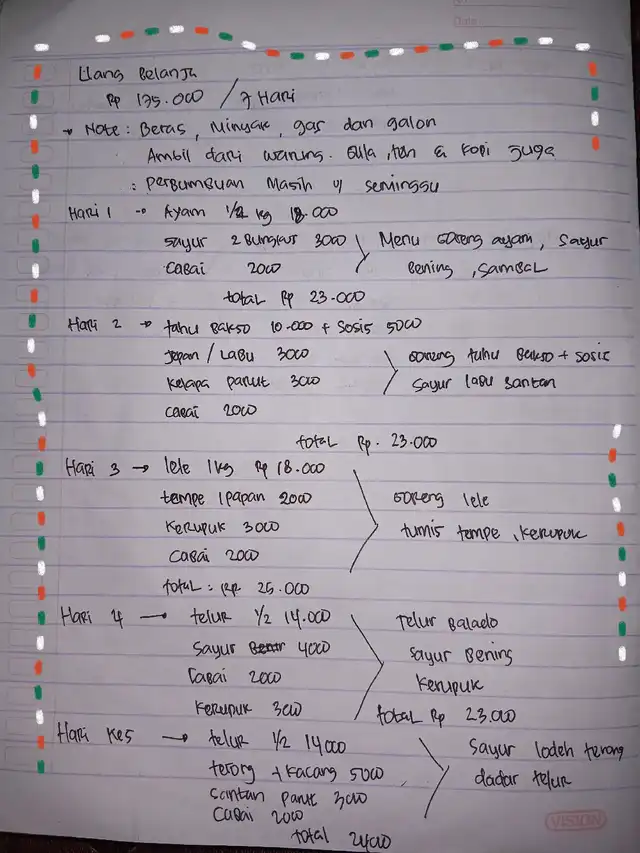 Date
Uang Belanja
Rp 175.000 / 7 Hari
→ Note : Beras, Minyak, gas dan galon
Ambil dari warung. Gula, teh & kopi juga
: Perbumbuan Masih u/ seminggu
Hari 1 → Ayam 1/2 kg 18.000
Sayur 2 Bungkus 3000
Cabai 2000
Menu Goreng ayam, Sayur
Bening, Sambal
total Rp 23.000
Hari 2 → tahu Bakso 10.000 + Sosis 5000
Jepan / Labu 3000
Kelapa parut 3000
Cabai 2000
Goreng tahu Bakso + Sosis
Sayur labu Santan
total Rp. 23.000
Hari 3 → lele 1 kg Rp 18.000
tempe 1 papan 2000
Kerupuk 3000
Cabai 2000
Goreng lele
tumis tempe, kerupuk
total : Rp 25.000
Hari 4 → telur 1/2 14.000
Sayur 4000
Cabai 2000
Kerupuk 3000
Telur Balado
Sayur Bening
Kerupuk
total Rp 23.000
Hari Ke5 → telur 1/2 14000
terong + Kacang 5000
Santan parut 3000
Cabai 2000
Sayur lodeh terong
dadar telur
total 24000
VISION